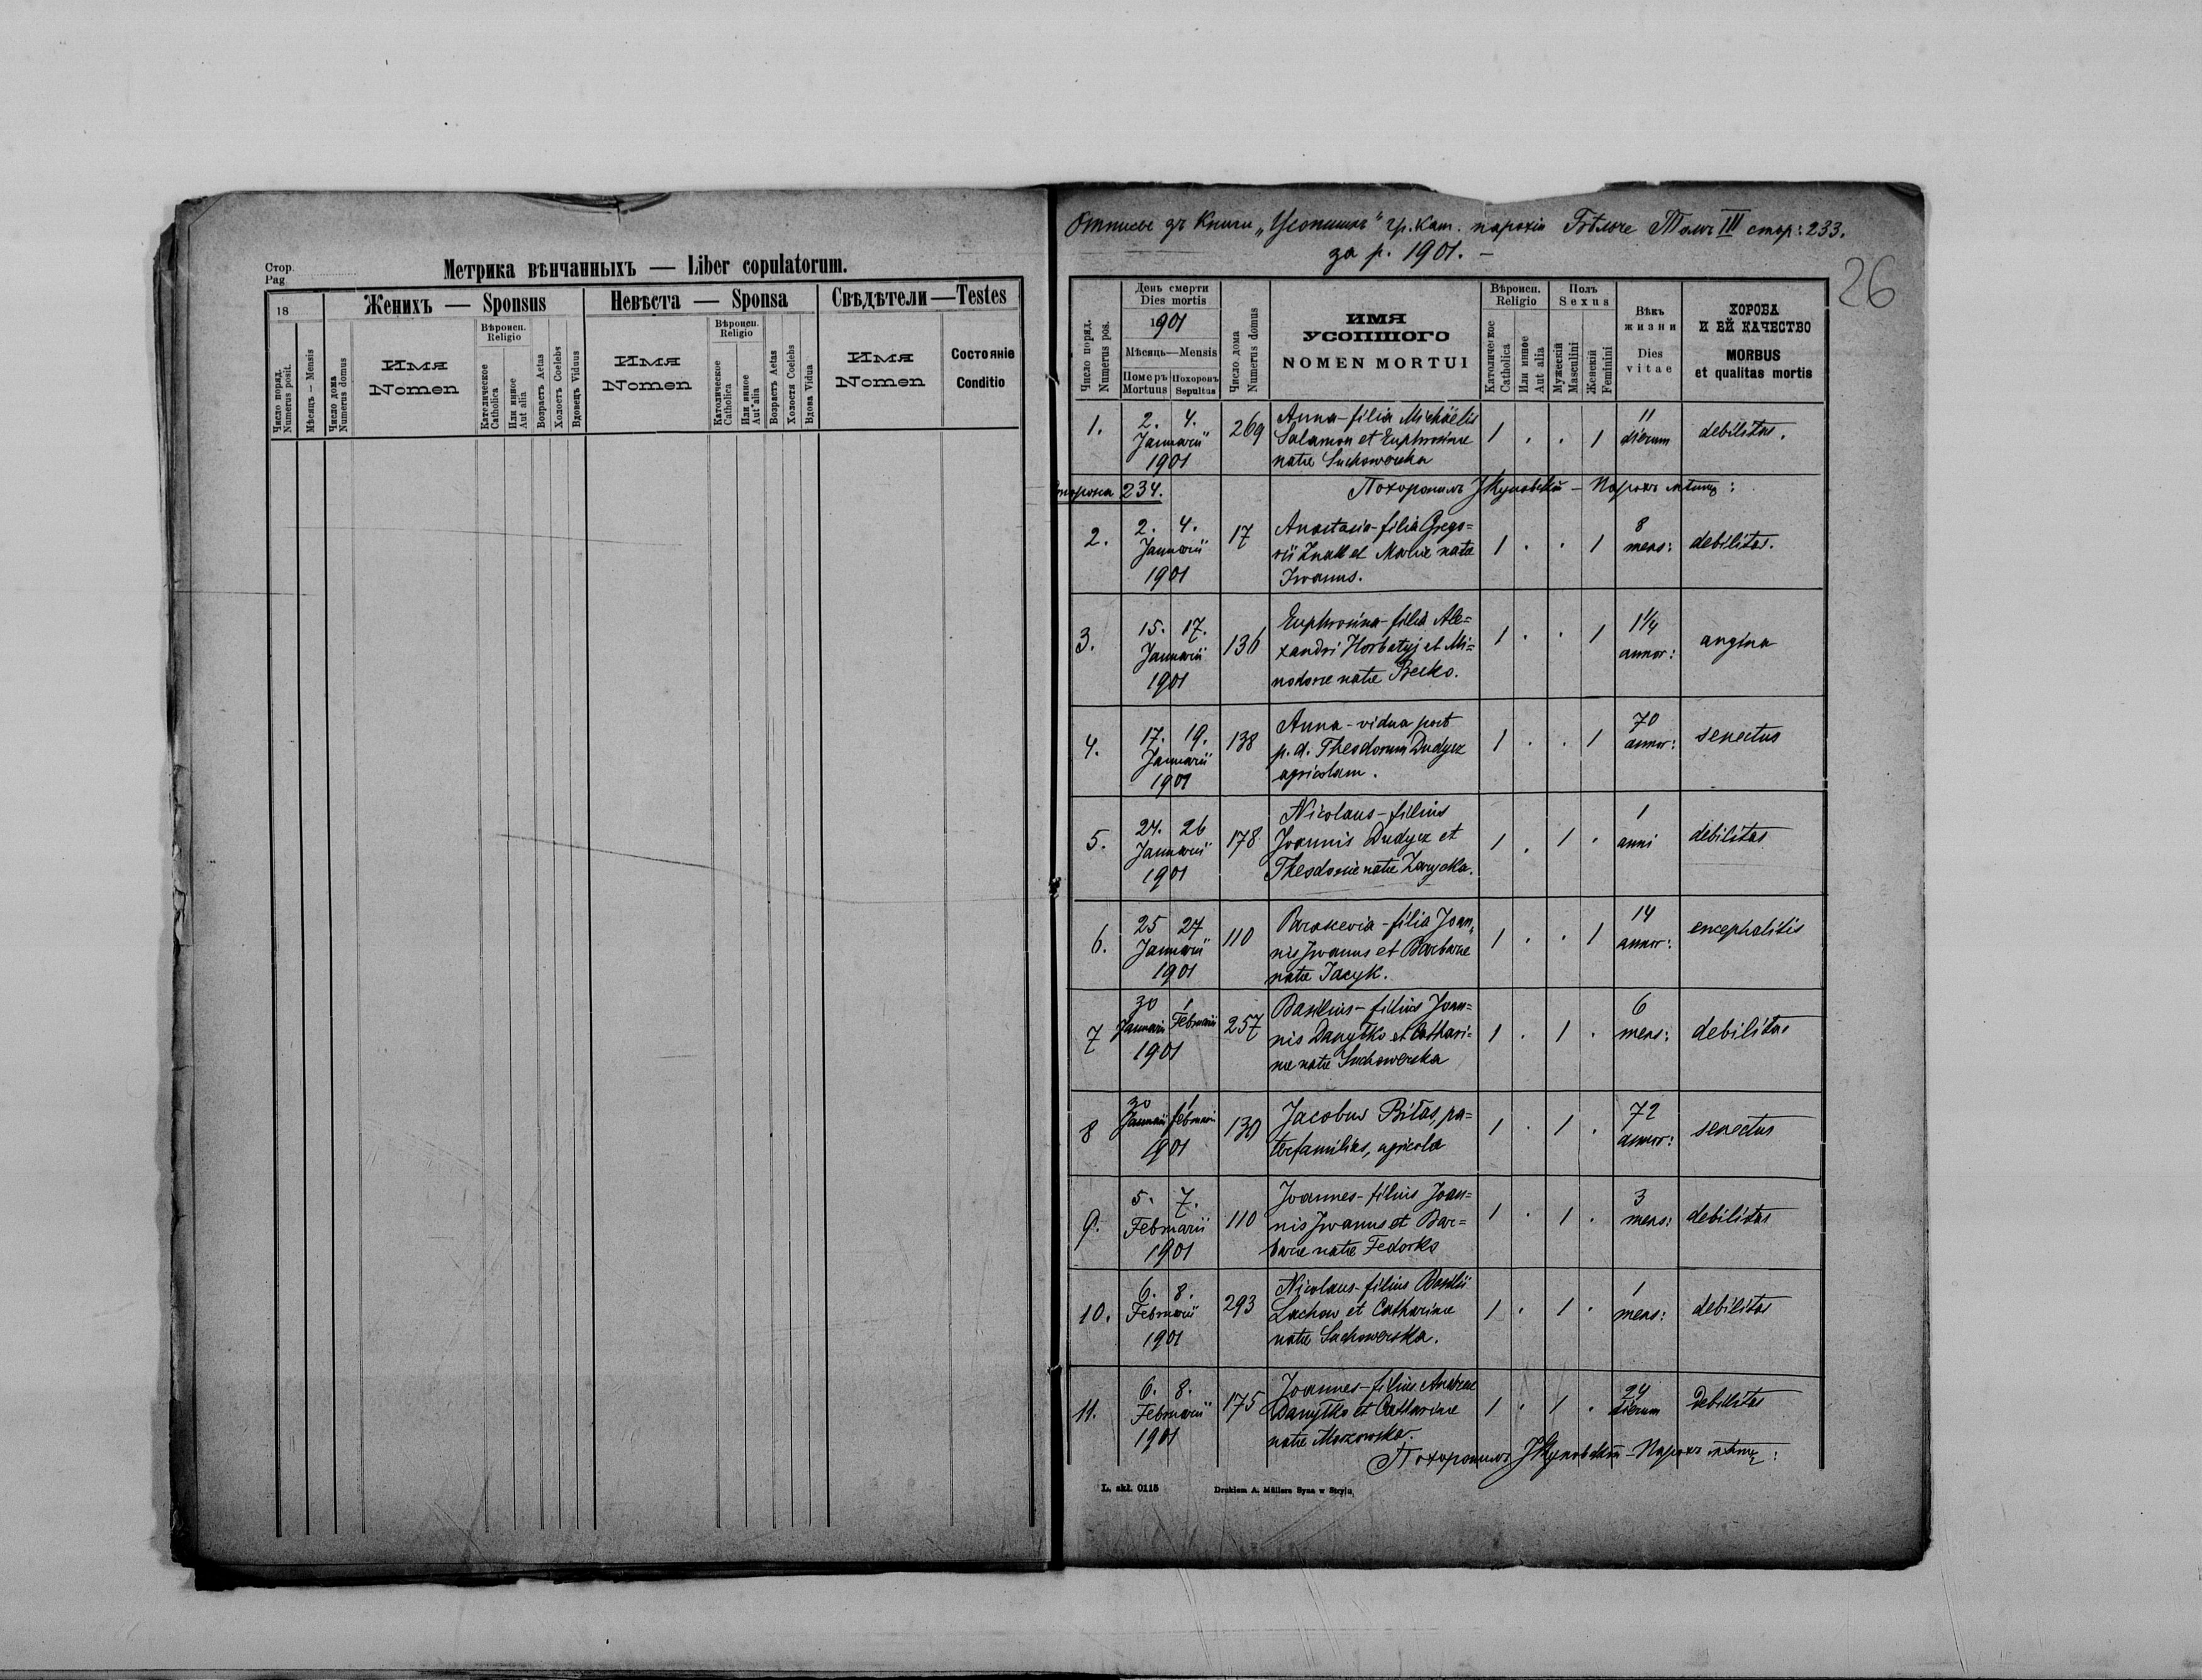 Стор.
Pag
Метрика вѣнчанныхъ — Liber copulatorum.
18
Женихъ — Sponsus
Невѣста — Sponsa
Свѣдѣтели — Testes
Число поряд.
Numerus posit.
Мѣсяць — Mensis
Число дома
Numerus domus
Имя
Nomen
Вѣроисп.
Religio
Католическое
Catholica
Или инное
Aut alia
Возрастъ Aetas
Холостъ Coelebs
Вдовецъ Viduus
Имя
Nomen
Вѣроисп.
Religio
Католическое
Catholica
Или инное
Aut alia
Возрастъ Aetas
Холостя Coelebs
Вдова Vidua
Имя
Nomen
Состояніе
Conditio
Отписъ зъ Книги „Усопшихъ" гр. кат. парохіи Томъ III стор: 233.
за р. 1901. –
26
Число поряд.
Numerus pos.
День смерти
Dies mortis
1901
Мѣсяць—Mensis
Померъ
Mortuus
Похоронъ
Sepultus
Число дома
Numerus domus
ИМЯ
УСОПШОГО
NOMEN MORTUI
Вѣроисп.
Religio
Католическое
Catholica
Или инное
Aut alia
Полъ
Sexus
Мужескій
Masculini
Женскій
Feminini
Вѣкъ
жизни
Dies
vitae
ХОРОБА
И ЕЙ КАЧЕСТВО
MORBUS
et qualitas mortis
1. 2. 4. 269 Anna – filia Michaëlis 1 . . 1 11 debilitas.
Januarii Salamon et Euphrosinae dierum
1901 natae Suchowerska
Сторона 234. Похоронилъ – Парохъ
2. 2. 4. 17 Anastasia – filia Grego= 1 . . 1 8 debilitas.
Januarii rii Znak et Mariae natae mens:
1901 Iwanus.
3. 15. 17. 136 Euphrosina – filia Ale= 1 . . 1 1¼ angina
Januarii xandri Horbatyj et Mi= annor:
1901 nodorae natae
4. 17. 19. 138 Anna – vidua post 1 . . 1 70 senectus
Januarii p. d. Theodorum Dudycz annor:
1901 agricolam.
5. 24. 26 178 Nicolaus – filius 1 . 1 . 1 debilitas
Januarii Joannis Dudycz et anni
1901 Theodorae natae Zarycka.
6. 25 27 110 Parascevia – filia Joan= 1 . . 1 14 encephalitis
Januarii nis Iwanus et Barbarae annor:
1901 natae Jacyk.
7 30 1 257 Basilius – filius Joan= 1 . 1 . 6 debilitas
Januarii Februarii nis Danyłko et Cathari= mens:
1901 nae natae Suchowerska
8 30 1 130 Jacobus Biłas, pa= 1 . 1 . 72 senectus
Januarii Februarii terfamilias, agricola annor:
1901
9. 5. 7. 110 Joannes – filius Joan= 1 . 1 . 3 debilitas
Februarii nis Iwanus et Bar= mens:
1901 barae natae Fedorko
10. 6. 8. 293 Nicolaus – filius Basilii 1 . 1 . 1 debilitas
Februarii Lachow et Catharinae mens:
1901 natae Suchowerska.
11. 6. 8. 175 Joannes – filius Andreae 1 . 1 . 24 Debilitas
Februarii Danyłko et Catharinae dierum
1901 natae
Похоронилъ – Парохъ
L. skł. 0115
Drukiem A. Müllera Syna w Stryju,